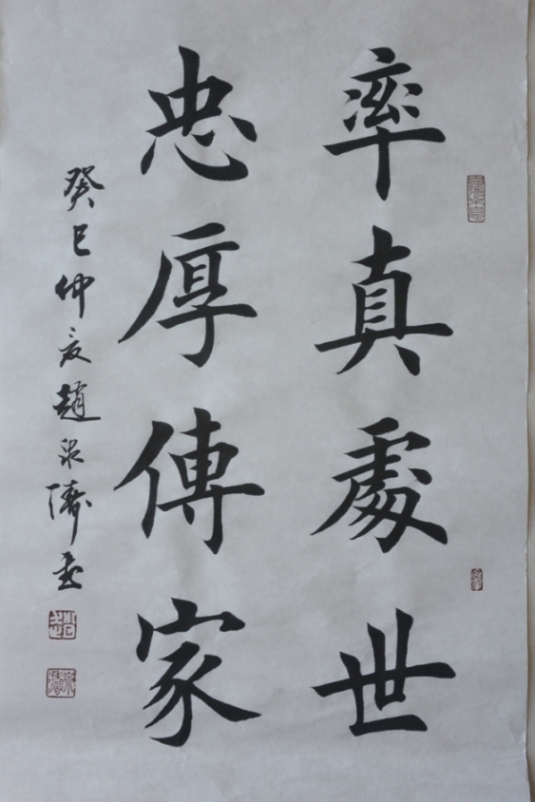 率真處世
忠厚傳家
癸巳仲夏趙泉濤書